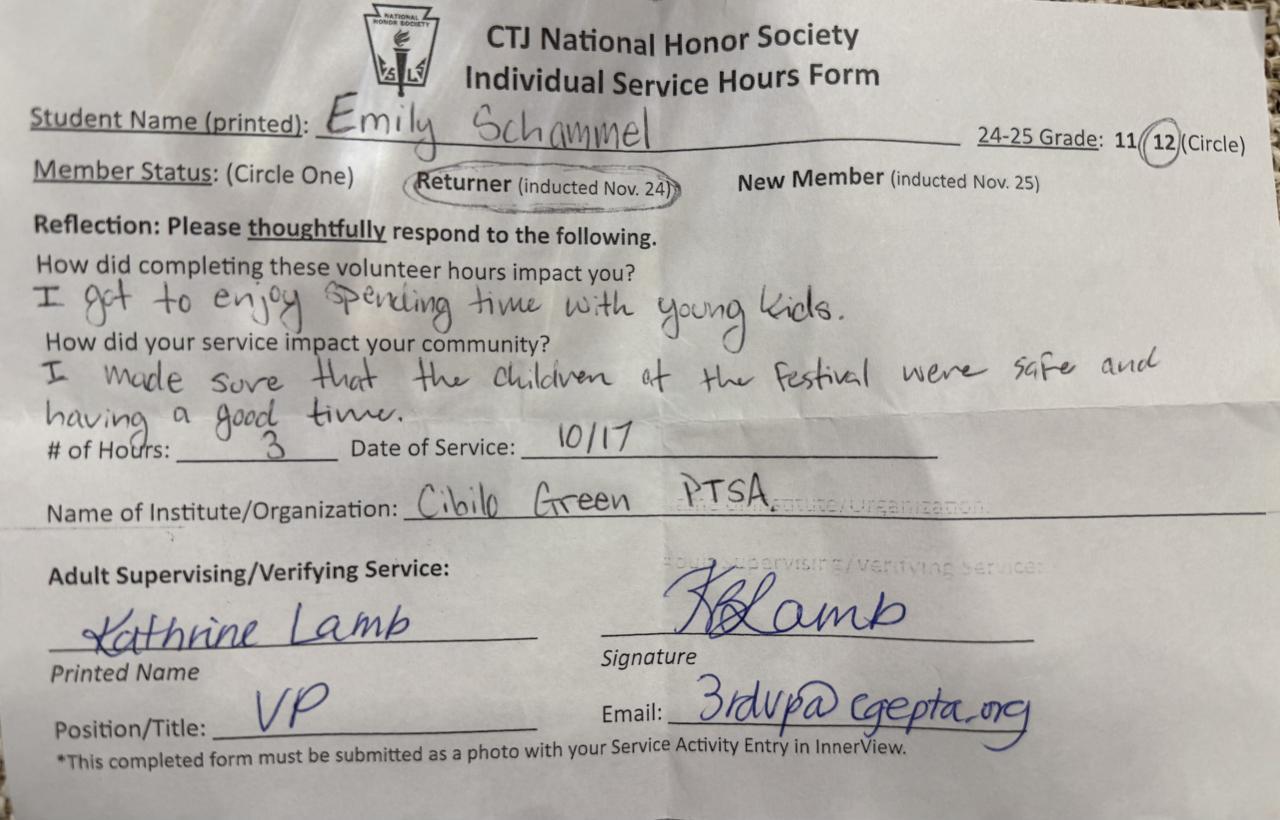 NATIONAL
HONOR SOCIETY
CTJ National Honor Society
Individual Service Hours Form
Student Name (printed): Emily Schammel 24-25 Grade: 11 12 (Circle)
Member Status: (Circle One) Returner (inducted Nov. 24) New Member (inducted Nov. 25)
Reflection: Please thoughtfully respond to the following.
How did completing these volunteer hours impact you?
I got to enjoy spending time with young kids.
How did your service impact your community?
I made sure that the children at the festival were safe and
having a good time.
# of Hours: 3 Date of Service: 10/17
Name of Institute/Organization: Cibilo Green PTSA.
Adult Supervising/Verifying Service:
Kathrine Lamb KBLamb
Printed Name Signature
Position/Title: VP Email: 3rdvpa@cgepta.org
*This completed form must be submitted as a photo with your Service Activity Entry in InnerView.